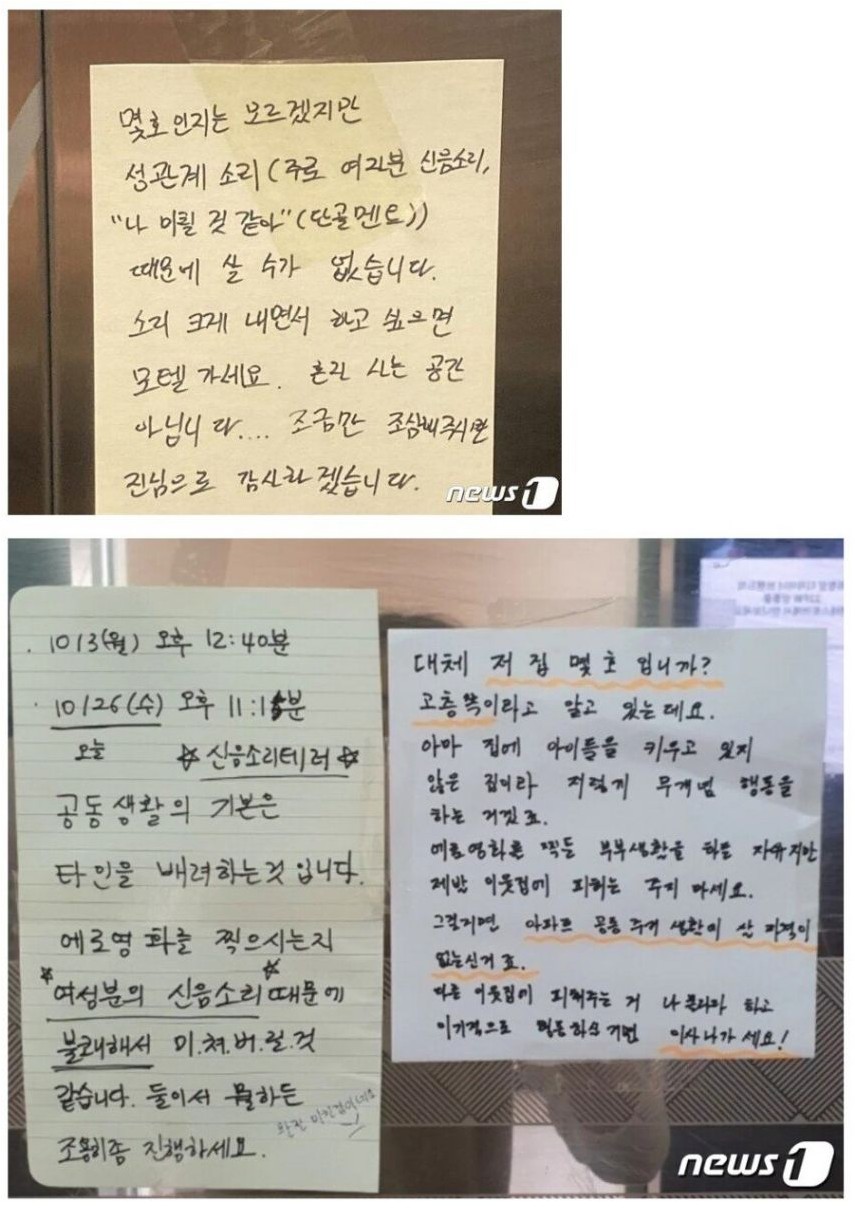 몇호인지는 모르겠지만
성관계 소리(주로 여자분 신음소리,
"나 미칠 것 같아"(단골멘트))
때문에 살 수가 없습니다.
소리 크게 내면서 하고 싶으면
모텔가세요. 혼자 사는 공간
아닙니다.... 조금만 조심해주시면
진심으로 감사하겠습니다.
news1
. 10/3(월) 오후 12:40분
· 10/26(수) 오후 11:15분
오늘 ☆신음소리테러☆
공동생활의 기본은
타인을 배려하는것 입니다.
에로영화를 찍으시는지
*여성분의 신음소리*때문에
불쾌해서 미.쳐.버.릴.것
같습니다. 둘이서 뭘하든
조용히좀 진행하세요.
완전
대체 저 집 몇 호 입니까?
고층쪽이라고 알고 있는데요.
아마 집에 아이들을 키우고 있지
않은 집이라 저렇게 무개념 행동을
하는 거겠죠.
에로영화를 찍든 부부생활을 하든 자유지만
제발 이웃집에 피해는 주지 마세요.
그럴거면 아파트 공동 주거 생활이 살 자격이
없는신거죠.
다른 이웃집이 피해주는 거 나 몰라라 하고
이기적으로 행동하실 거면 이사 나가세요!
news1